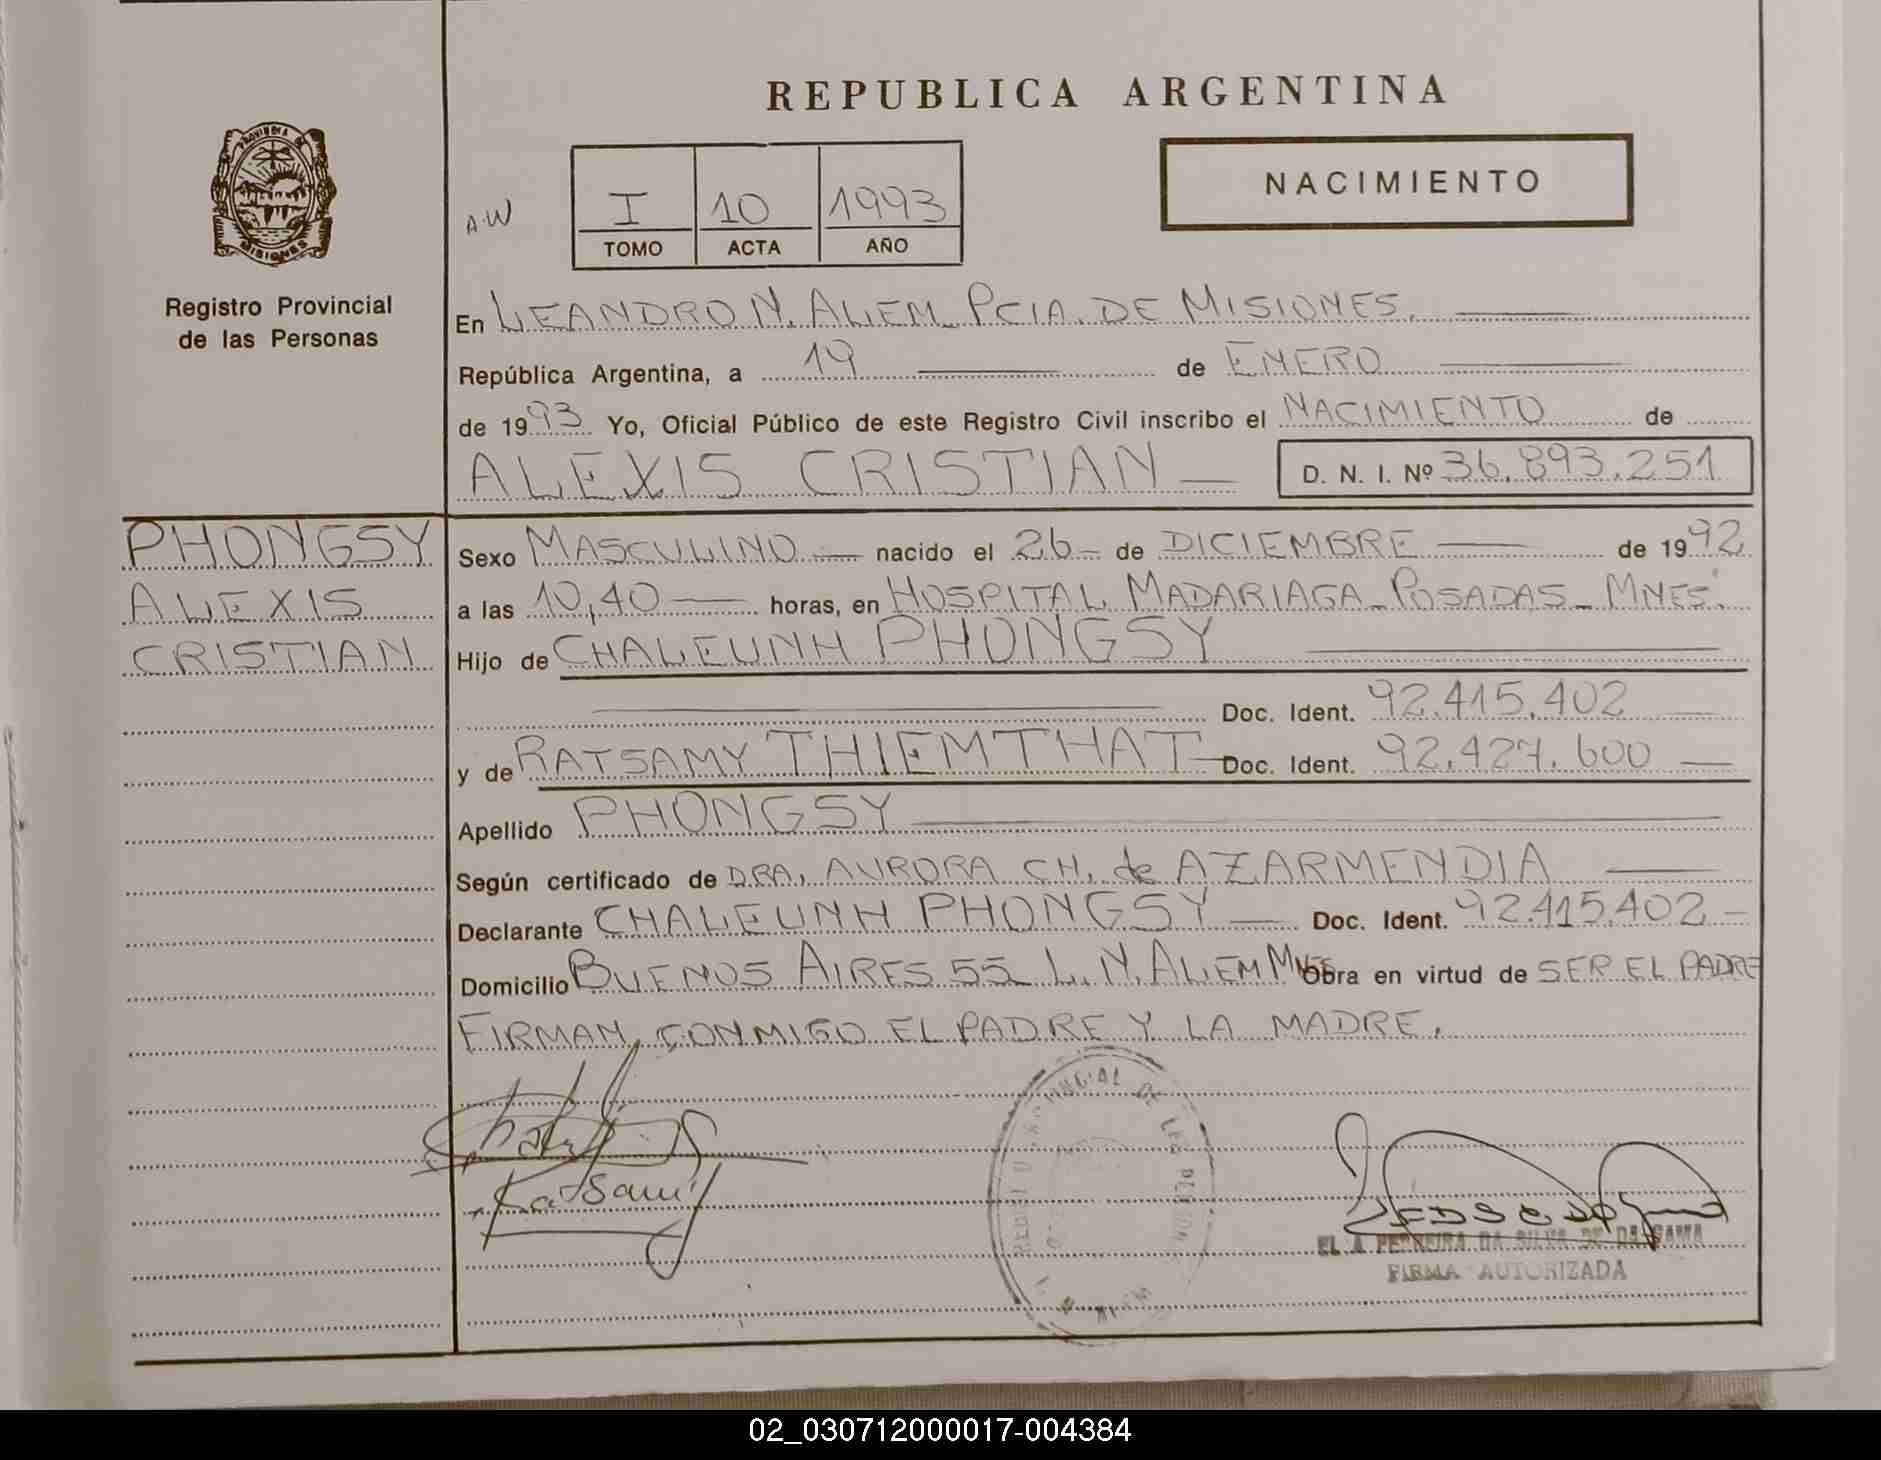 REPUBLICA ARGENTINA
PROVINCIA DE
MISIONES
Registro Provincial
de las Personas
NACIMIENTO
A.W
I 10 1993
TOMO ACTA AÑO
En LEANDRO N. ALEM PCIA. DE MISIONES.
República Argentina, a 19 de ENERO
de 1993 Yo, Oficial Público de este Registro Civil inscribo el NACIMIENTO de
ALEXIS CRISTIAN D. N. I. Nº 36.893.251
PHONGSY
ALEXIS
CRISTIAN
Sexo MASCULINO nacido el 26 de DICIEMBRE de 1992
a las 10,40 horas, en HOSPITAL MADARIAGA - POSADAS - MNES.
Hijo de CHALEUNH PHONGSY
Doc. Ident. 92.415.402
y de RATSAMY THIEMTHAT Doc. Ident. 92.427.600
Apellido PHONGSY
Según certificado de DRA. AURORA CH. de AZARMENDIA
Declarante CHALEUNH PHONGSY Doc. Ident. 92.415.402
Domicilio BUENOS AIRES 55 L.N. ALEM MNES Obra en virtud de SER EL PADRE
FIRMAN CONMIGO EL PADRE Y LA MADRE.
Ratsamy
REGISTRO PROVINCIAL DE LAS PERSONAS
FERREIRA DA SILVA DE DA GAMA
FIRMA AUTORIZADA
02_030712000017-004384